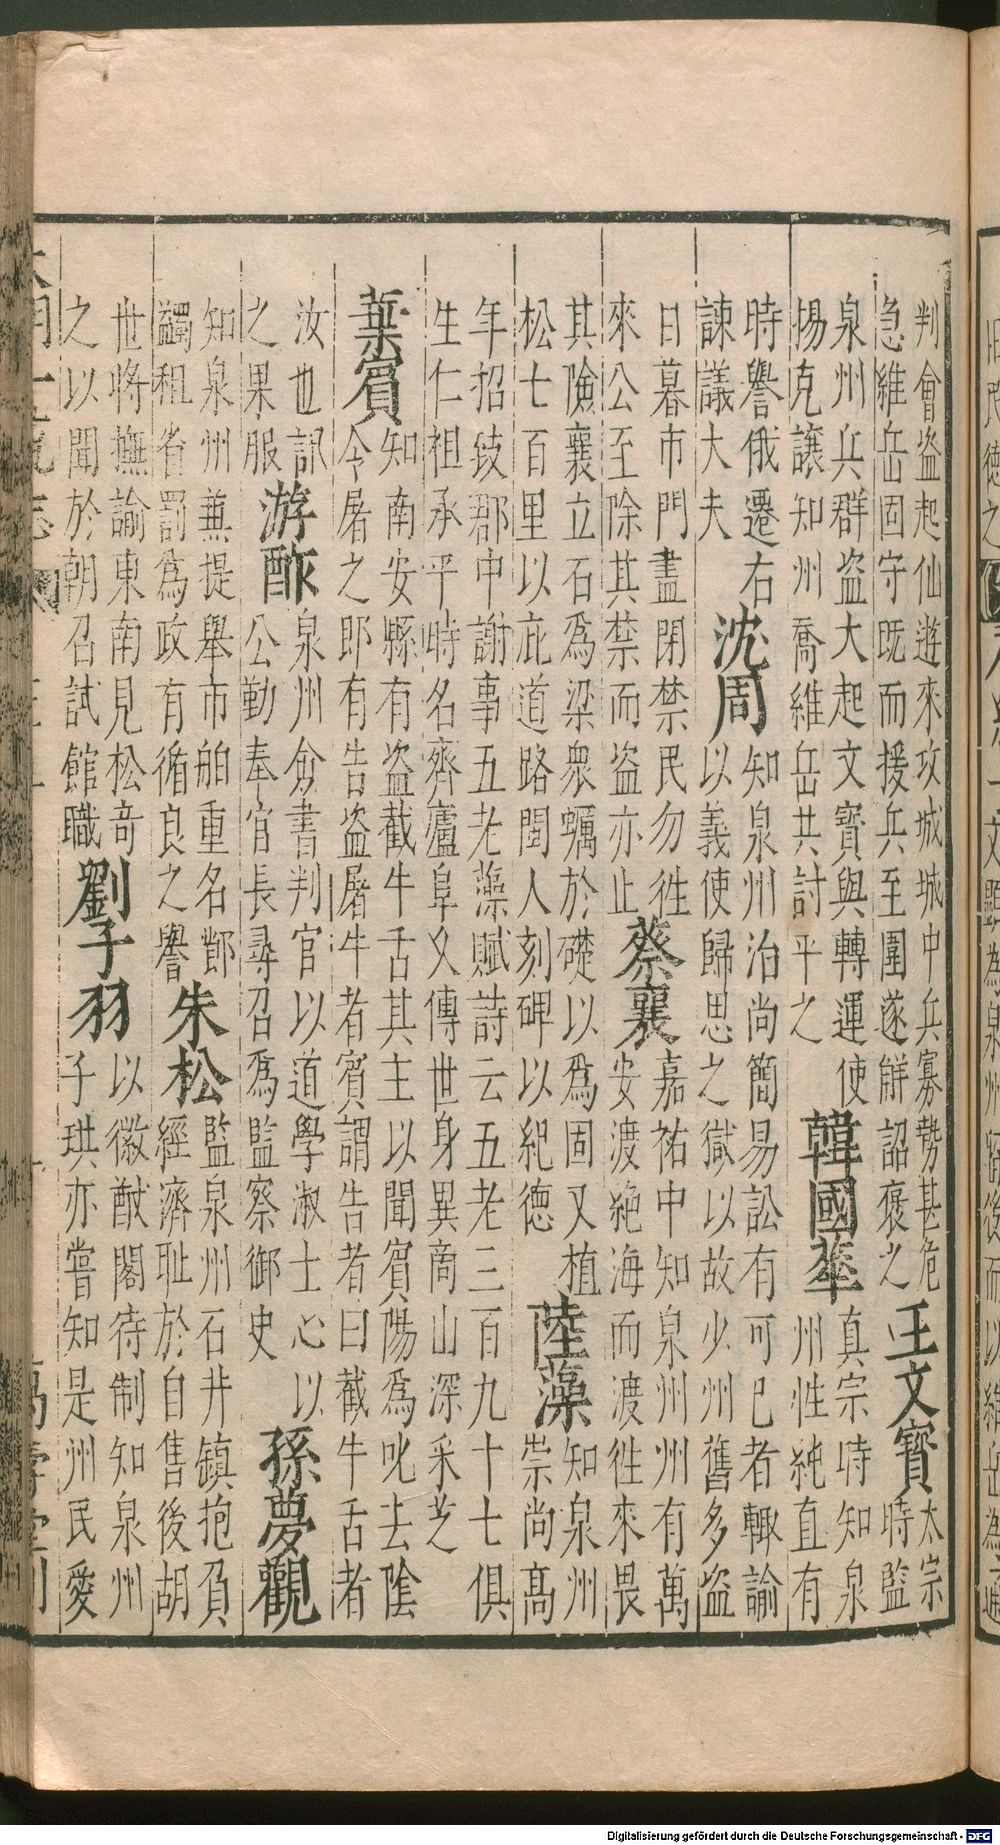 判會盜起仙遊來攻城城中兵寡勢甚危
急維岳固守既而援兵至圍遂解詔褒之
王文寶
太宗
時監
泉州兵群盜大起文寶與轉運使
楊克讓知州喬維岳共討平之
韓國華
真宗時知泉
州性純直有
時譽俄遷右
諫議大夫
沈周
知泉州治尚簡易訟有可已者輙諭
以義使歸思之獄以故少州舊多盜
日暮市門盡閉禁民勿徃
來公至除其禁而盜亦止
蔡襄
嘉祐中知泉州州有萬
安渡絶海而渡徃來畏
其險襄立石爲梁衆蠣於礎以爲固又植
松七百里以庇道路閩人刻碑以紀德
陸藻
知泉州
崇尚高
年招致郡中謝事五老藻賦詩云五老三百九十七俱
生仁祖承平時名齊廬阜乆傳世身異商山深采芝
葉賓
知南安縣有盜截牛舌其主以聞賓陽爲叱去陰
令屠之即有告盜屠牛者賓謂告者曰截牛舌者
汝也訊
之果服
游酢
泉州僉書判官以道學淑士心以
公勤奉官長尋召爲監察御史
孫夢觀
知泉州兼提舉市舶重名
蠲租省罰爲政有循良之譽
朱松
監泉州石井鎮抱負
經濟耻於自售後胡
世將撫諭東南見松竒
之以聞於朝召試館職
劉子羽
以徽猷閣待制知泉州
子珙亦嘗知是州民愛
Digitalisierung gefördert durch die Deutsche Forschungsgemeinschaft - DFG